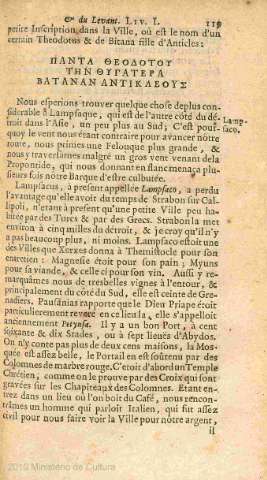 & du Levant. LIV. I. 119
petite Inscription dans la Ville, où est le nom d'un
certain Theodotus & de Bitana fille d'Anticles:
ΠΑΝΤΑ ΘΕΟΔΟΤΟΥ
ΤΗΝ ΘΥΓΑΤΕΡΑ
ΒΑΤΑΝΑΝ ΑΝΤΙΚΛΕΟΥΣ
Nous esperions trouver quelque chose de plus considerable à Lampsaque, qui est de l'autre côté du détroit
siderable à Lampsaque, qui est de l'autre côté du dé-
troit dans l'Asie, un peu plus au Sud; C'est pour-
quoy le vent nous étant contraire pour avancer nôtre
route, nous primes une Felouque plus grande, &
nous y traversâmes malgré un gros vent venant de la
Propontide, qui nous donnant en flanc menaça plu-
sieurs fois nôtre Barque d'estre culbutée.
Lamp-
saco.
Lampsacus, à present appellée Lampsaco, a perdu
l'avantage qu'elle avoit du temps de Strabon sur Cal-
lipoli, n'étant à present qu'une petite Ville peu ha-
bitée par des Turcs & par des Grecs. Strabon la met
environ à cinq milles du détroit, & je croy qu'il n'y
a pas beaucoup plus, ni moins. Lampsaco estoit une
des Villes que Xerxes donna à Themistocle pour son
entretien: Magnesie étoit pour son pain; Myuns
pour sa viande, & celle ci pour son vin. Aussi y re-
marquâmes nous de tres belles vignes à l'entour, &
principalement du côté du Sud, elle est ceinte de Gre-
nadiers. Pausanias rapporte que le Dieu Priape étoit
particulierement reveré en ce lieu là. elle s'appelloit
anciennement Petynsa. Il y a un bon Port, à cent
soixante & dix Stades, ou à sept lieuës d'Abydos.
On n'y conte pas plus de deux cens maisons, la Mos-
quée est assez belle, le Portail en est soûtenu par des
Colomnes de marbre rouge. C'etoit d'abord un Temple
Chrétien, comme on le prouve par des Croix qui sont
gravées sur les Chapiteaux des Colomnes. Etant en-
trez dans un lieu où l'on boit du Café, nous rencon-
trâmes un homme qui parloit Italien, qui fut assez
civil pour nous faire voir la Ville pour nôtre argent,
il
2010 Ministério de Cultura